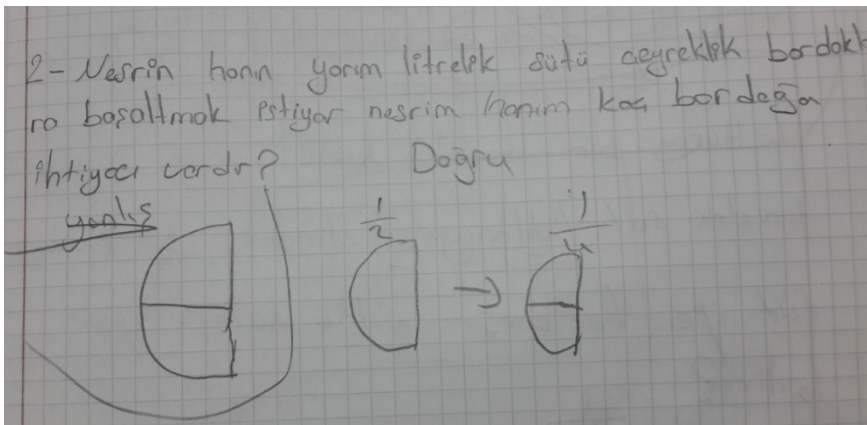 2- Nesrin hanın yarım litrelik sütü çeyreklik bardakla
ra boşaltmak istiyor nesrim hanım kaç bardağa
ihtiyacı vardır? Doğru
yanlış
1/2 → 1/4